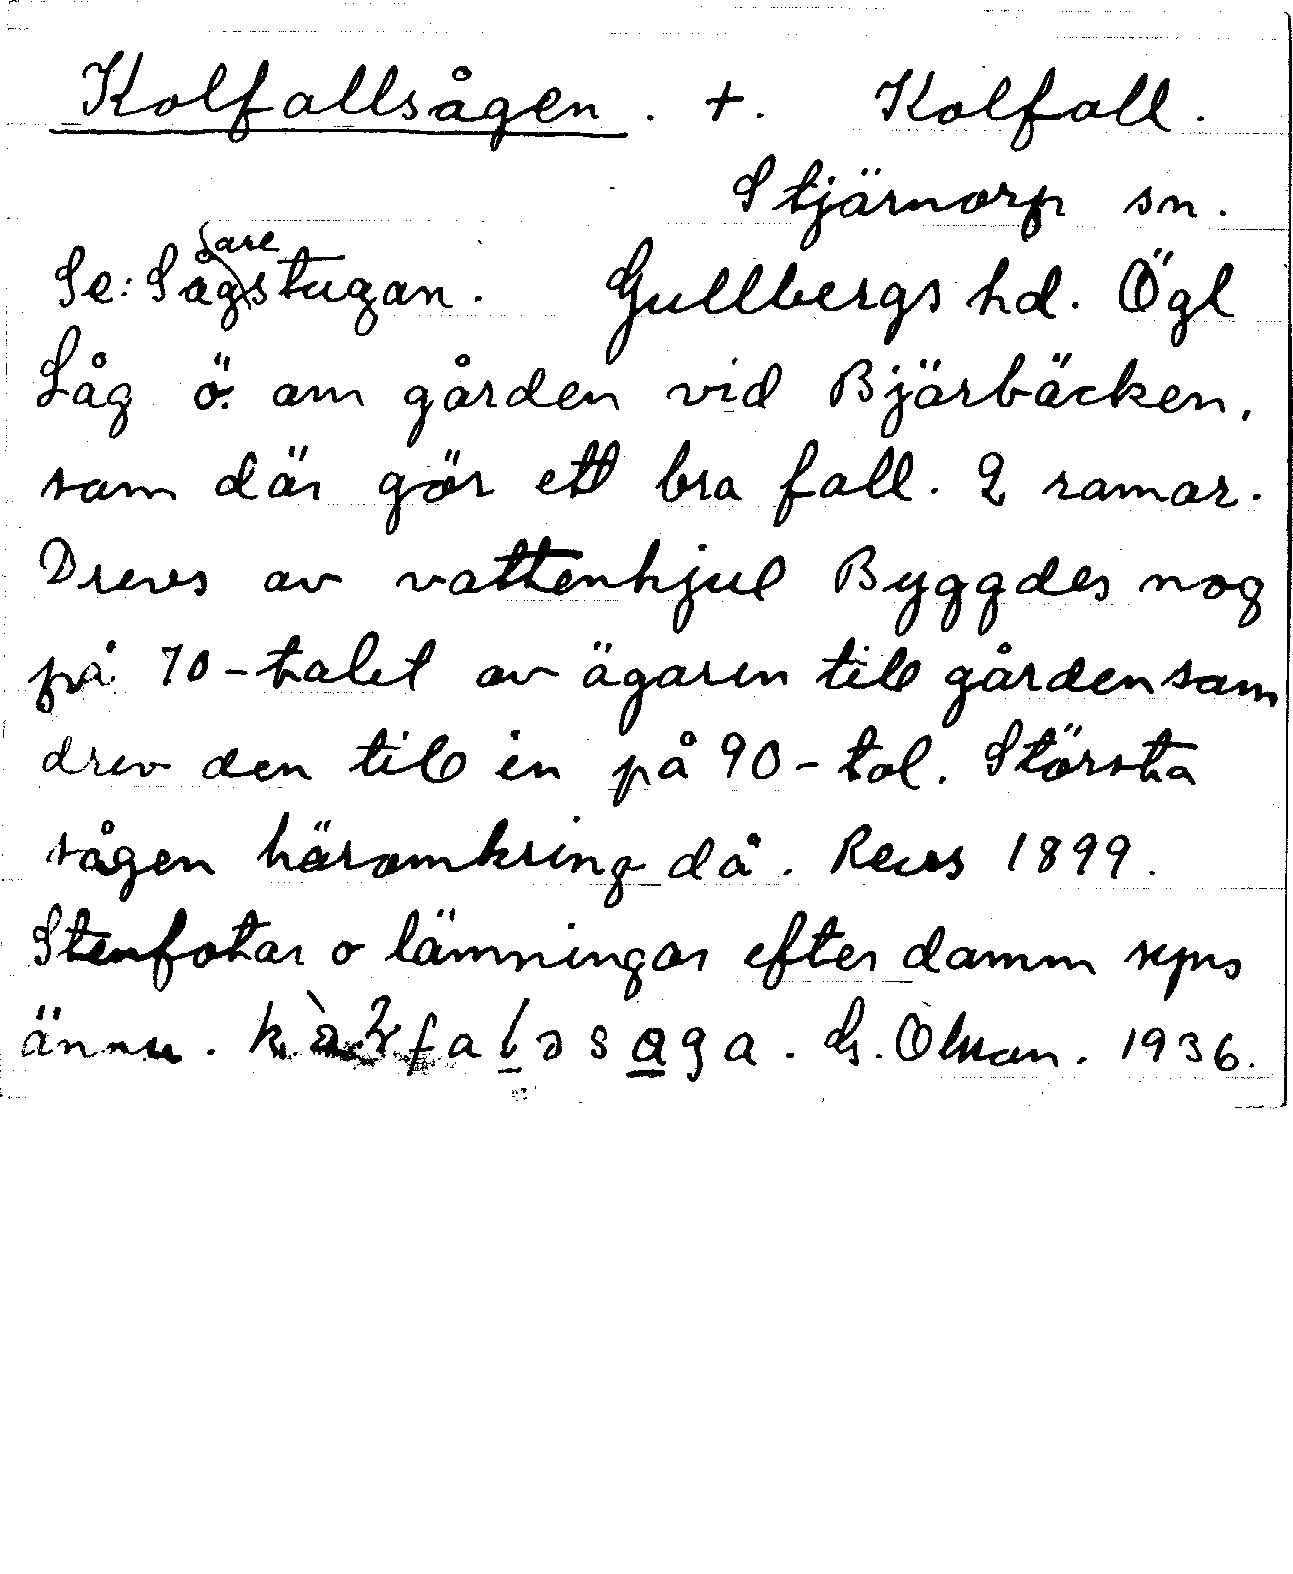 Kolfallsågen. +. Kolfall.
Stjärnorp sn.
Se: Sågarestugan. Gullbergs hd. Ögl
Låg ö. om gården vid Bjärbäcken,
som där gör ett bra fall. 2 ramar.
Drevs av vattenhjul Byggdes nog
på 70-talet av ägaren till gården som
drev den till in på 90-tal. Största
sågen häromkring då. Revs 1899.
Stenfotar o lämningar efter damm syns
ännu. G. Olsson. 1936.